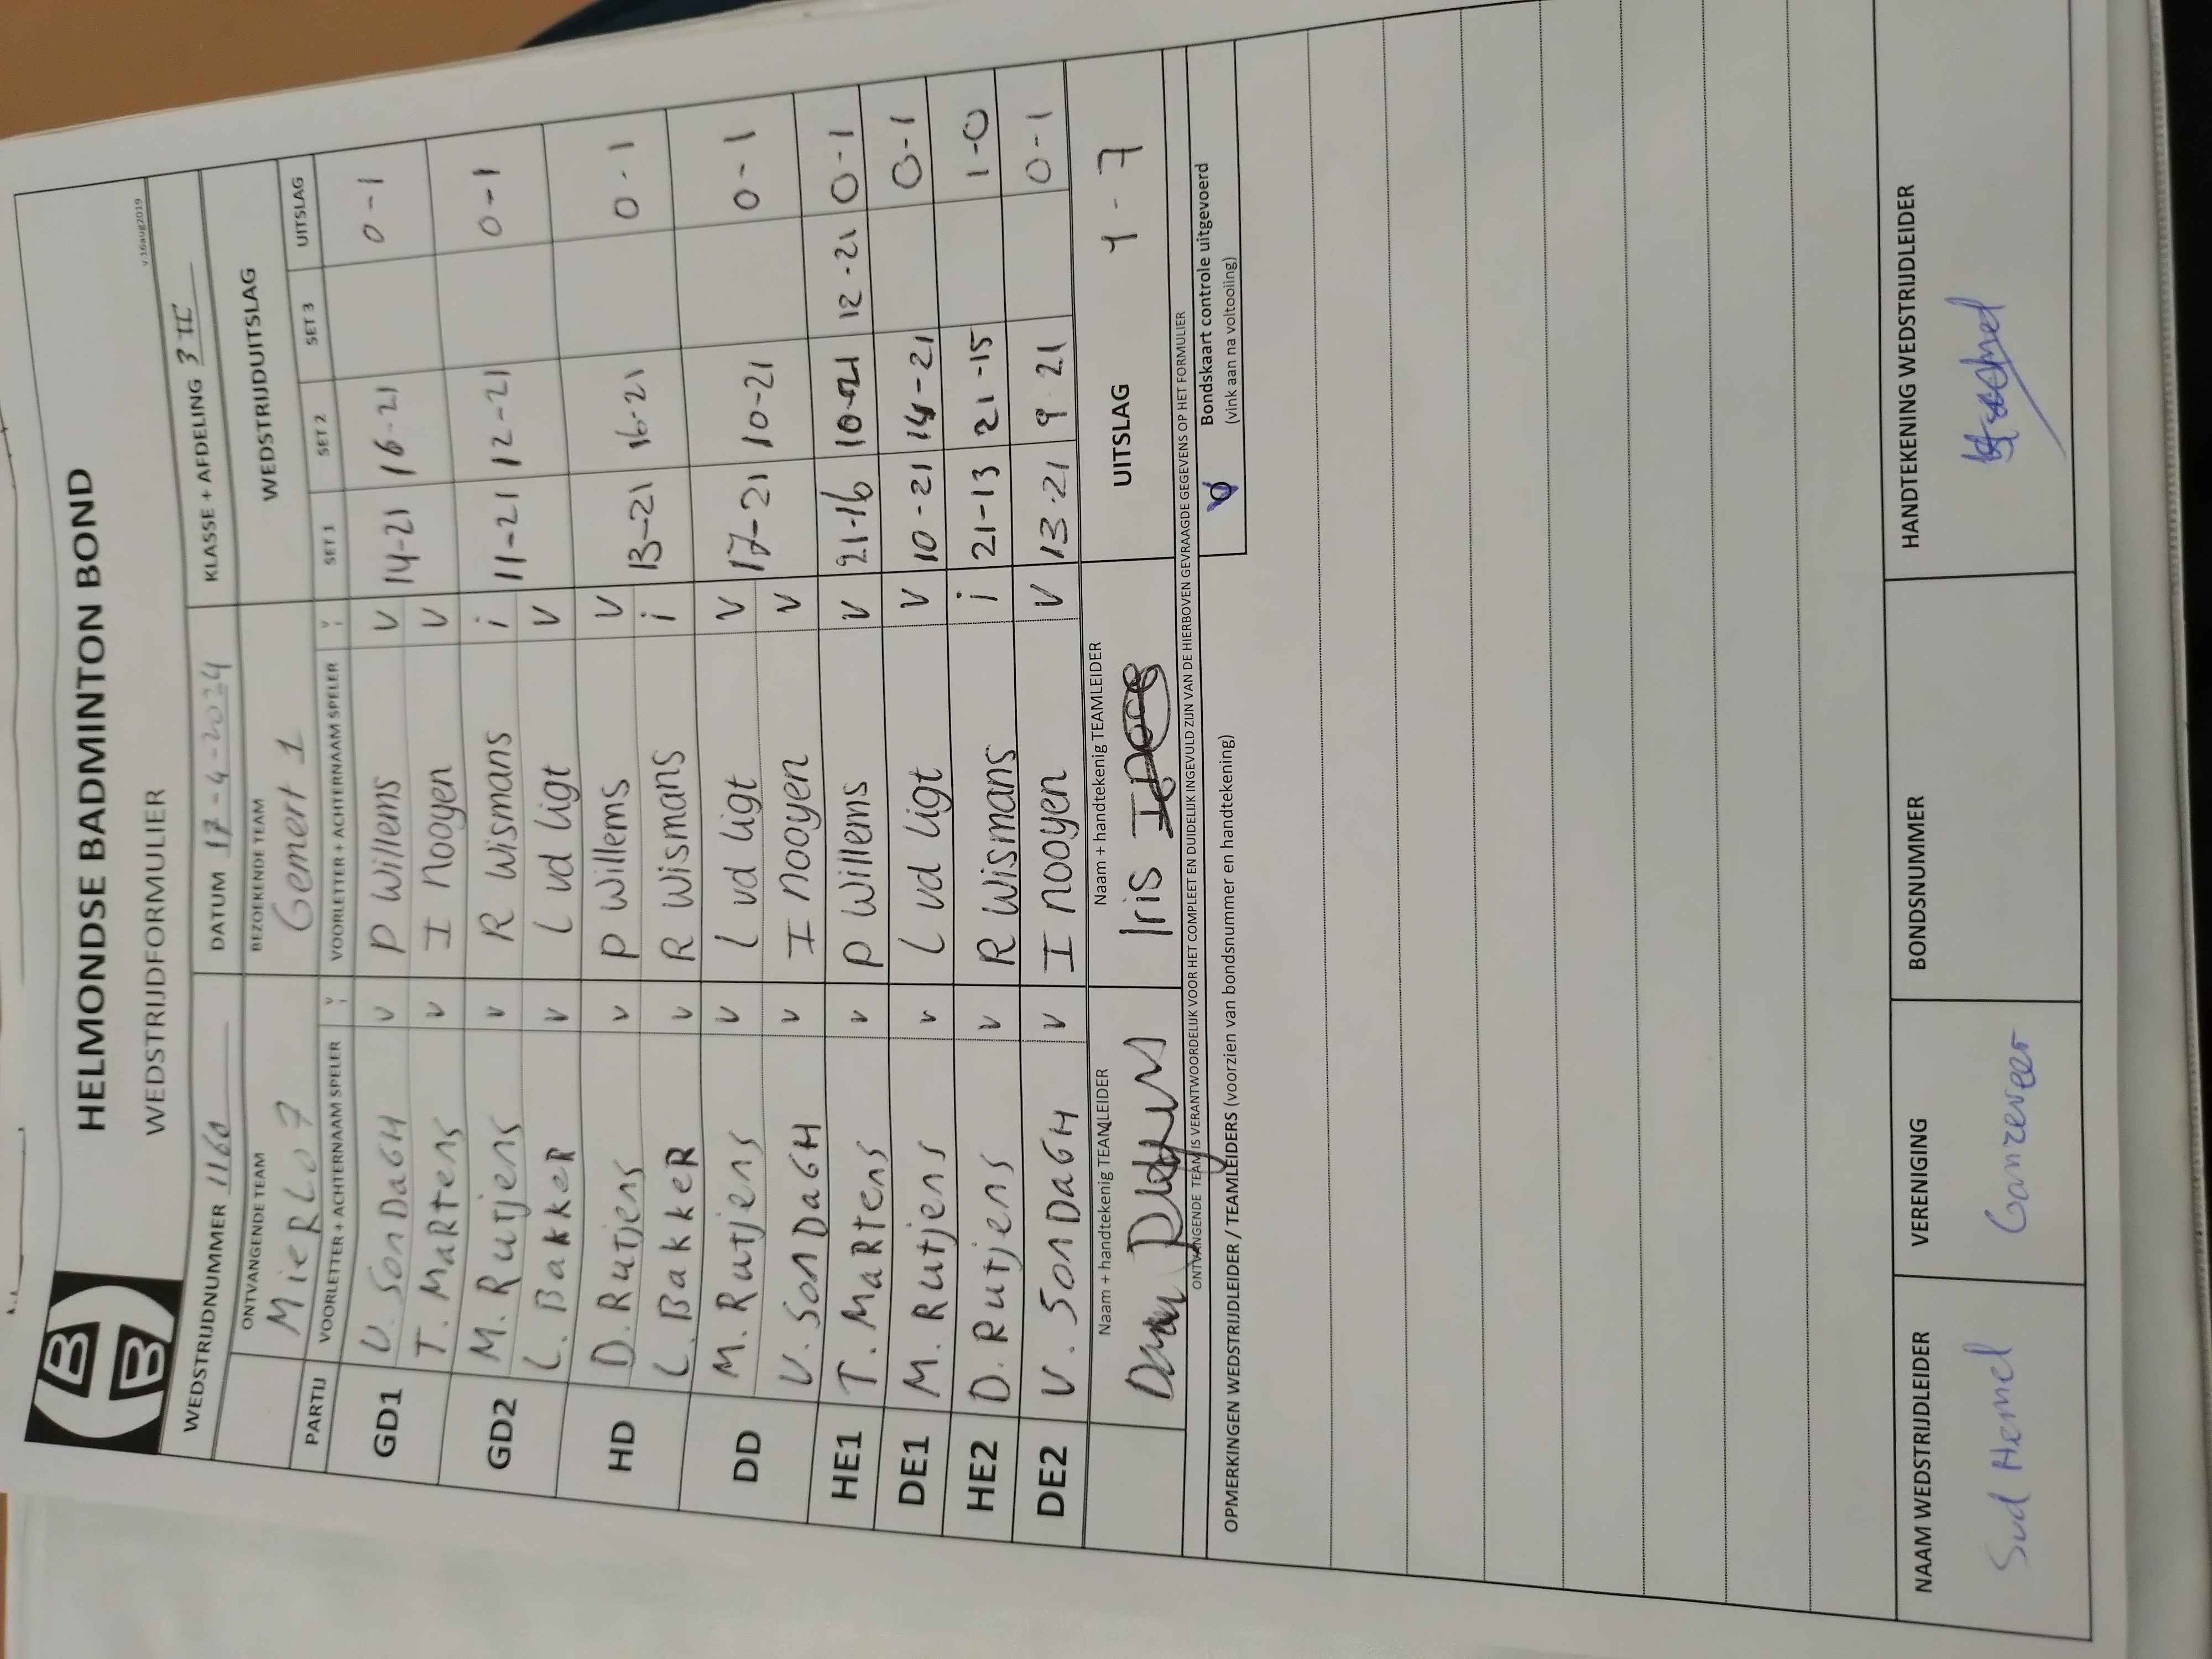 HELMONDSE BADMINTON BOND
WEDSTRIJDFORMULIER
v.16aug2019
WEDSTRIJDNUMMER 1160 DATUM 17-4-2024 KLASSE + AFDELING 3 II
ONTVANGENDE TEAM BEZOEKENDE TEAM WEDSTRIJDUITSLAG
MieRLo 7 Gemert 1
PARTIJ VOORLETTER + ACHTERNAAM SPELER V/I VOORLETTER + ACHTERNAAM SPELER V/I SET 1 SET 2 SET 3 UITSLAG
GD1 V. SonDaGH v P Willems V 14-21 16-21 0-1
T. MaRtens v I nooyen V
GD2 M. Rutjens v R Wismans i 11-21 12-21 0-1
L. BakkeR v L vd Ligt V
HD D. Rutjens v P Willems V 13-21 16-21 0-1
L. BakkeR v R Wismans i
DD M. Rutjens v L vd Ligt V 17-21 10-21 0-1
V. SonDaGH v I nooyen V
HE1 T. MaRtens v P Willems V 21-16 10-21 12-21 0-1
DE1 M. Rutjens v L vd Ligt V 10-21 14-21 0-1
HE2 D. Rutjens v R Wismans i 21-13 21-15 1-0
DE2 V. SonDaGH v I nooyen V 13-21 9-21 0-1
Naam + handtekenig TEAMLEIDER Naam + handtekenig TEAMLEIDER UITSLAG 1-7
Iris
ONTVANGENDE TEAM IS VERANTWOORDELIJK VOOR HET COMPLEET EN DUIDELIJK INGEVULD ZIJN VAN DE HIERBOVEN GEVRAAGDE GEGEVENS OP HET FORMULIER
OPMERKINGEN WEDSTRIJDLEIDER / TEAMLEIDERS (voorzien van bondsnummer en handtekening)
Bondskaart controle uitgevoerd
(vink aan na voltooiing)
NAAM WEDSTRIJDLEIDER VERENIGING BONDSNUMMER HANDTEKENING WEDSTRIJDLEIDER
Hemel Ganzeveer